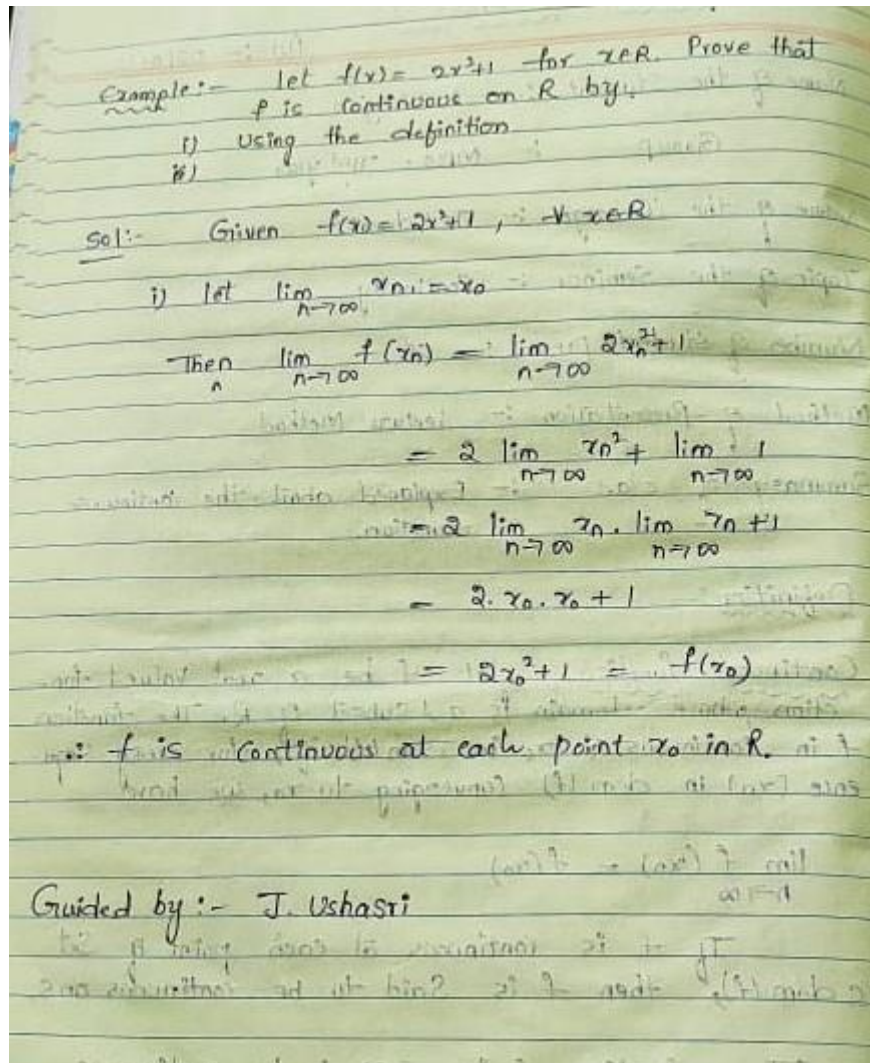 Example:- let f(x) = 2x²+1 for x∈R. Prove that
f is continuous on R by.
i) Using the definition
ii)
Sol:- Given f(x) = 2x²+1, ∀ x∈R
i) let lim n→∞ xn = x₀
Then lim n→∞ f(xn) = lim n→∞ 2xn²+1
= 2 lim n→∞ xn² + lim n→∞ 1
= 2 lim n→∞ xn . lim n→∞ xn +1
= 2. x₀. x₀ + 1
= 2x₀²+1 = f(x₀)
∴ f is continuous at each point x₀ in R.
Guided by:- J. Ushasri